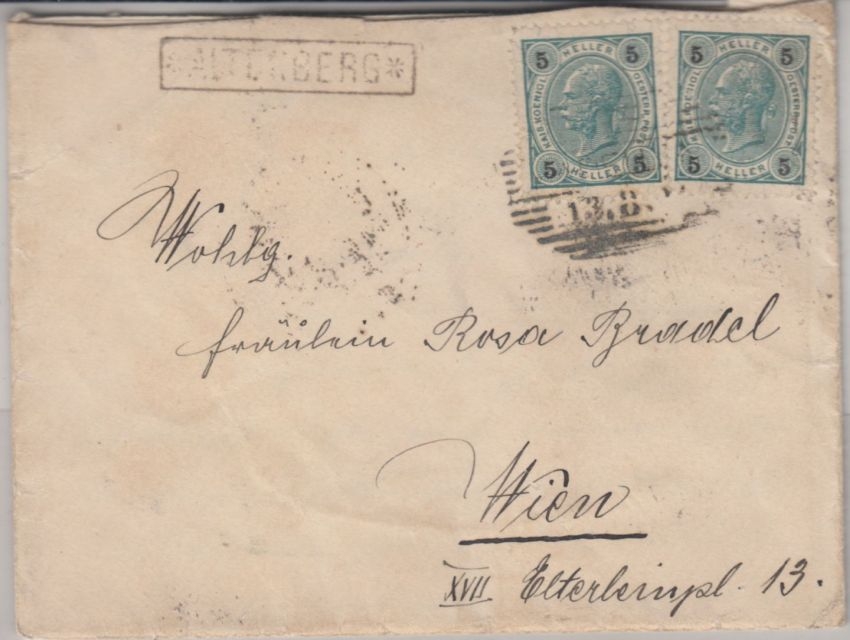 *ALTENBERG*
5 HELLER 5
KAIS. KOENIGL. OESTERR. POST
5 HELLER 5
5 HELLER 5
OESTERR. POST
5 HELLER 5
13.8.
Wohlg.
Fräulein Rosa Bradel
Wien
XVII. Elterleinpl. 13.